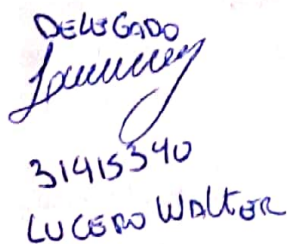 DELEGADO
31415340
LUCERO WALTER